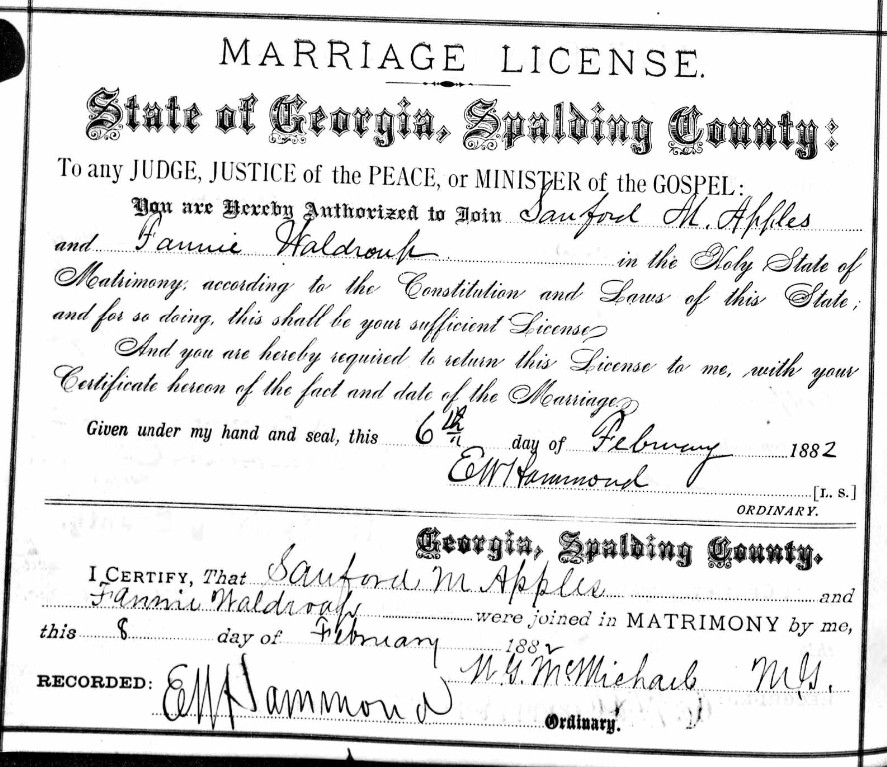 MARRIAGE LICENSE.
State of Georgia, Spalding County:
To any JUDGE, JUSTICE of the PEACE, or MINISTER of the GOSPEL:
You are Hereby Authorized to Join Sanford M. Apples
and Fannie Waldroup in the Holy State of
Matrimony, according to the Constitution and Laws of this State;
and for so doing, this shall be your sufficient License,
And you are hereby required to return this License to me, with your
Certificate hereon of the fact and date of the Marriage,
Given under my hand and seal, this 6th day of February 1882
E W Hammond [L. S.]
ORDINARY.
Georgia, Spalding County.
I CERTIFY, That Sanford M Apples and
Fannie Waldroup were joined in MATRIMONY by me,
this 8 day of February 1882
W. G. McMichael M.G.
RECORDED: E W Hammond
Ordinary.